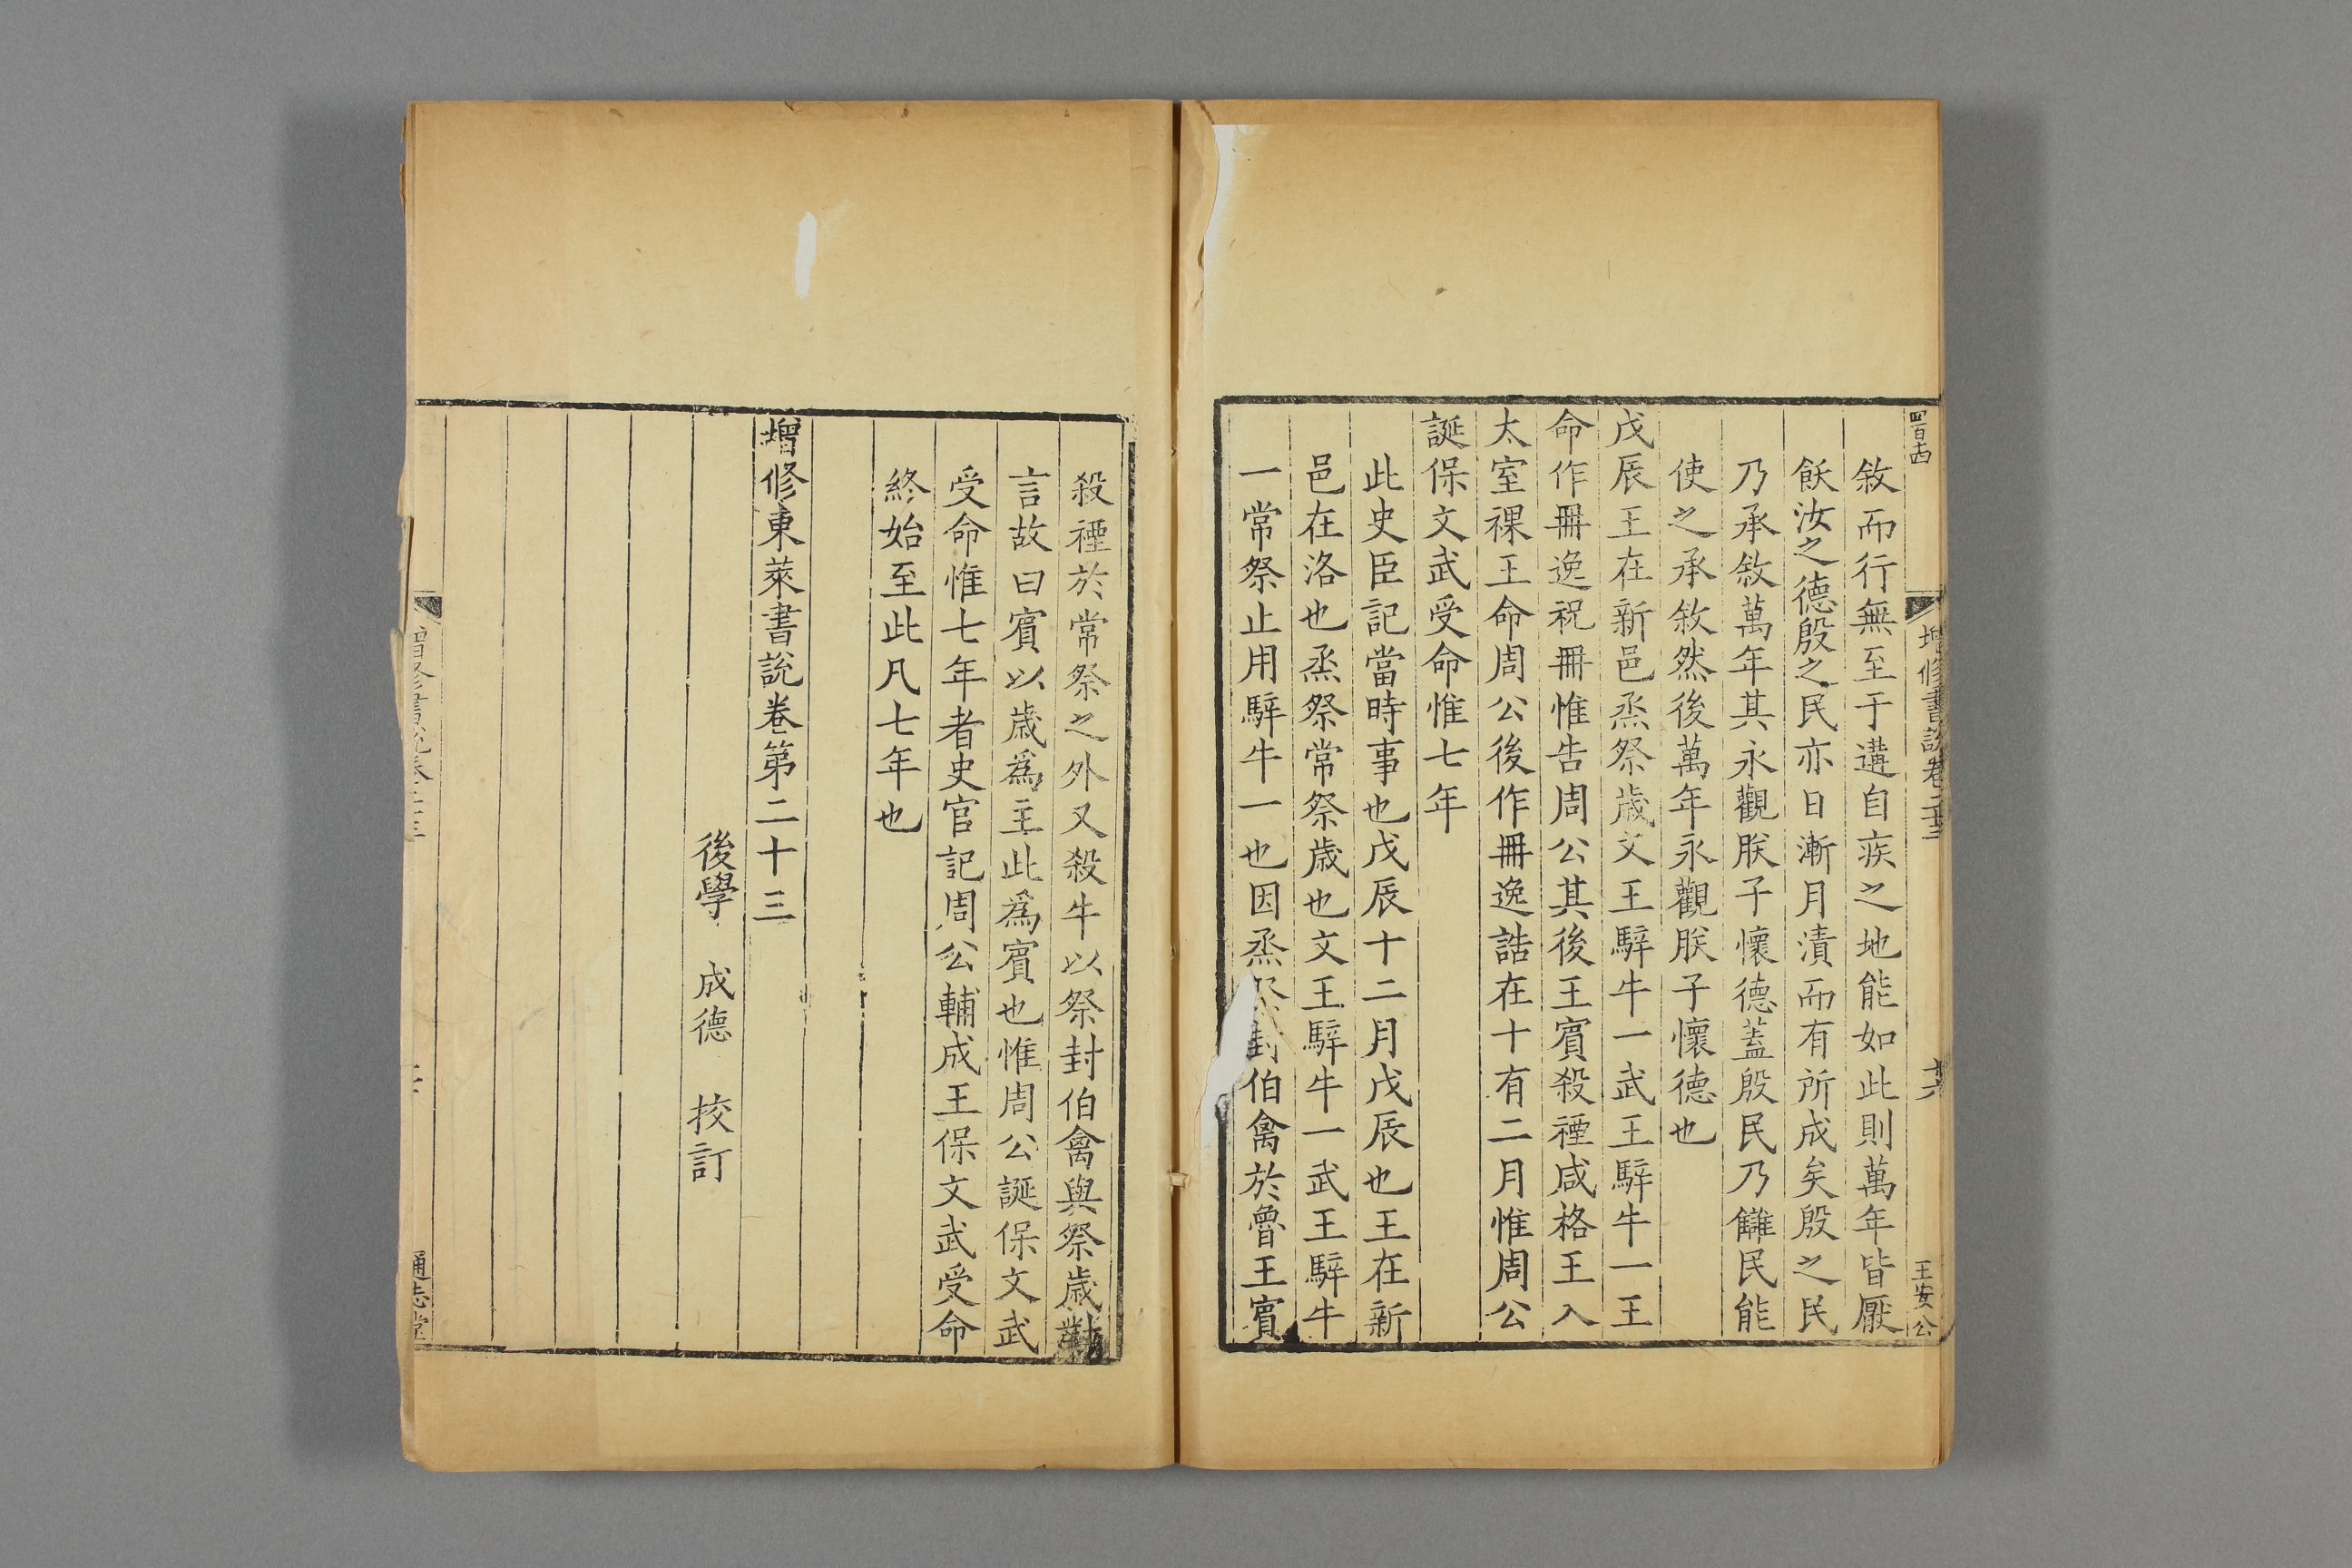 四百十四
增修書說卷二十三
十六
王安公
敘而行無至于遘自疾之地能如此則萬年皆厭
飫汝之德殷之民亦日漸月漬而有所成矣殷之民
乃承敘萬年其永觀朕子懷德蓋殷民乃讎民能
使之承敘然後萬年永觀朕子懷德也
戊辰王在新邑烝祭歲文王騂牛一武王騂牛一王
命作冊逸祝冊惟告周公其後王賓殺禋咸格王入
太室祼王命周公後作冊逸誥在十有二月惟周公
誕保文武受命惟七年
此史臣記當時事也戊辰十二月戊辰也王在新
邑在洛也烝祭常祭歲也文王騂牛一武王騂牛
一常祭止用騂牛一也因烝祭封伯禽於魯王賓
殺禋於常祭之外又殺牛以祭封伯禽與祭歲對
言故曰賓以歲為主此為賓也惟周公誕保文武
受命惟七年者史官記周公輔成王保文武受命
終始至此凡七年也
增修東萊書說卷第二十三
後學 成德 挍訂
增修書說卷二十三
通志堂